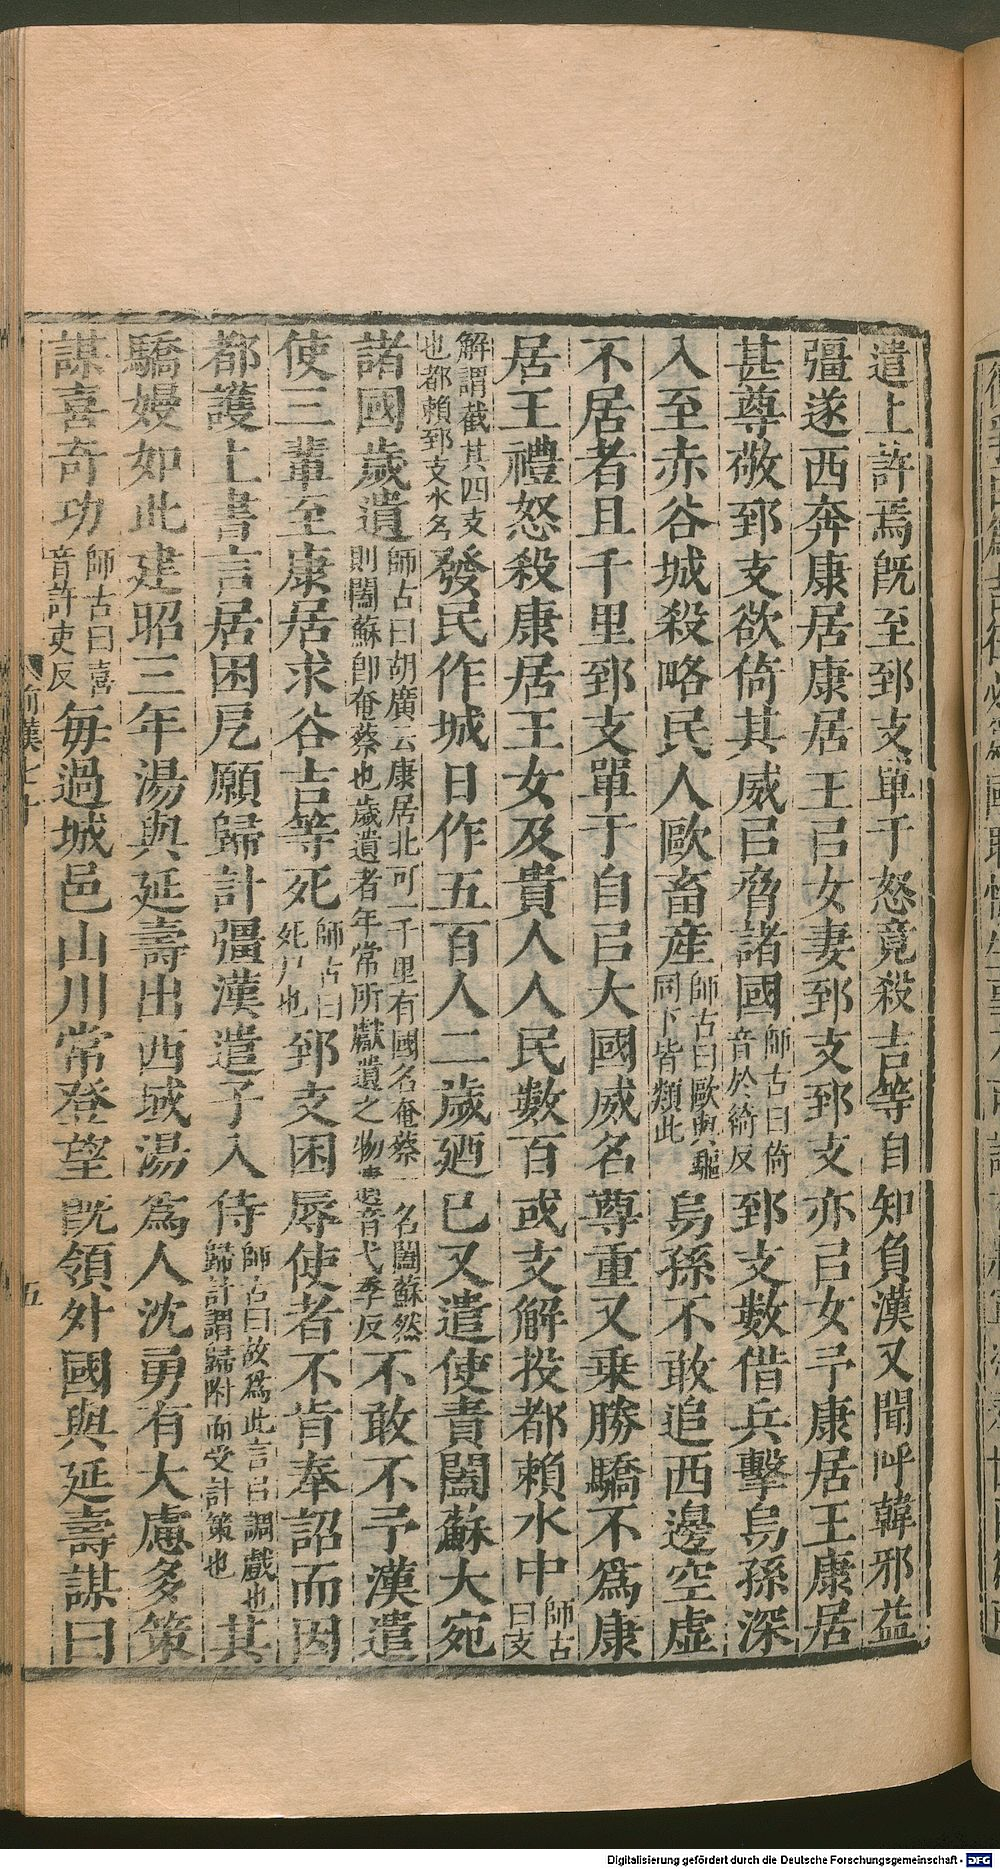 遣上許焉既至郅支單于怒竟殺吉等自知負漢又聞呼韓邪益
彊遂西奔康居康居王㠯女妻郅支郅支亦㠯女予康居王康居
甚尊敬郅支欲倚其威㠯脅諸國師古曰倚音於綺反郅支數借兵擊烏孫深
入至赤谷城殺略民人歐畜產師古曰歐與驅同下皆類此烏孫不敢追西邊空虛
不居者且千里郅支單于自㠯大國威名尊重又乘勝驕不為康
居王禮怒殺康居王女及貴人人民數百或支解投都賴水中師古曰支
解謂截其四支也都賴郅支水名發民作城日作五百人二歲廼已又遣使責闔蘇大宛
諸國歲遺師古曰胡廣云康居北可一千里有國名奄蔡一名闔蘇然則闔蘇即奄蔡也歲遺者年常所獻遺之物遺音弋季反不敢不予漢遣
使三輩至康居求谷吉等死師古曰死尸也郅支困辱使者不肯奉詔而因
都護上書言居困戹願歸計彊漢遣子入侍師古曰故為此言㠯調戲也歸計謂歸附而受計策也其
驕嫚如此建昭三年湯與延壽出西域湯為人沈勇有大慮多策
謀喜奇功師古曰喜音許吏反每過城邑山川常登望既領外國與延壽謀曰
前漢七十
五
Digitalisierung gefördert durch die Deutsche Forschungsgemeinschaft - DFG